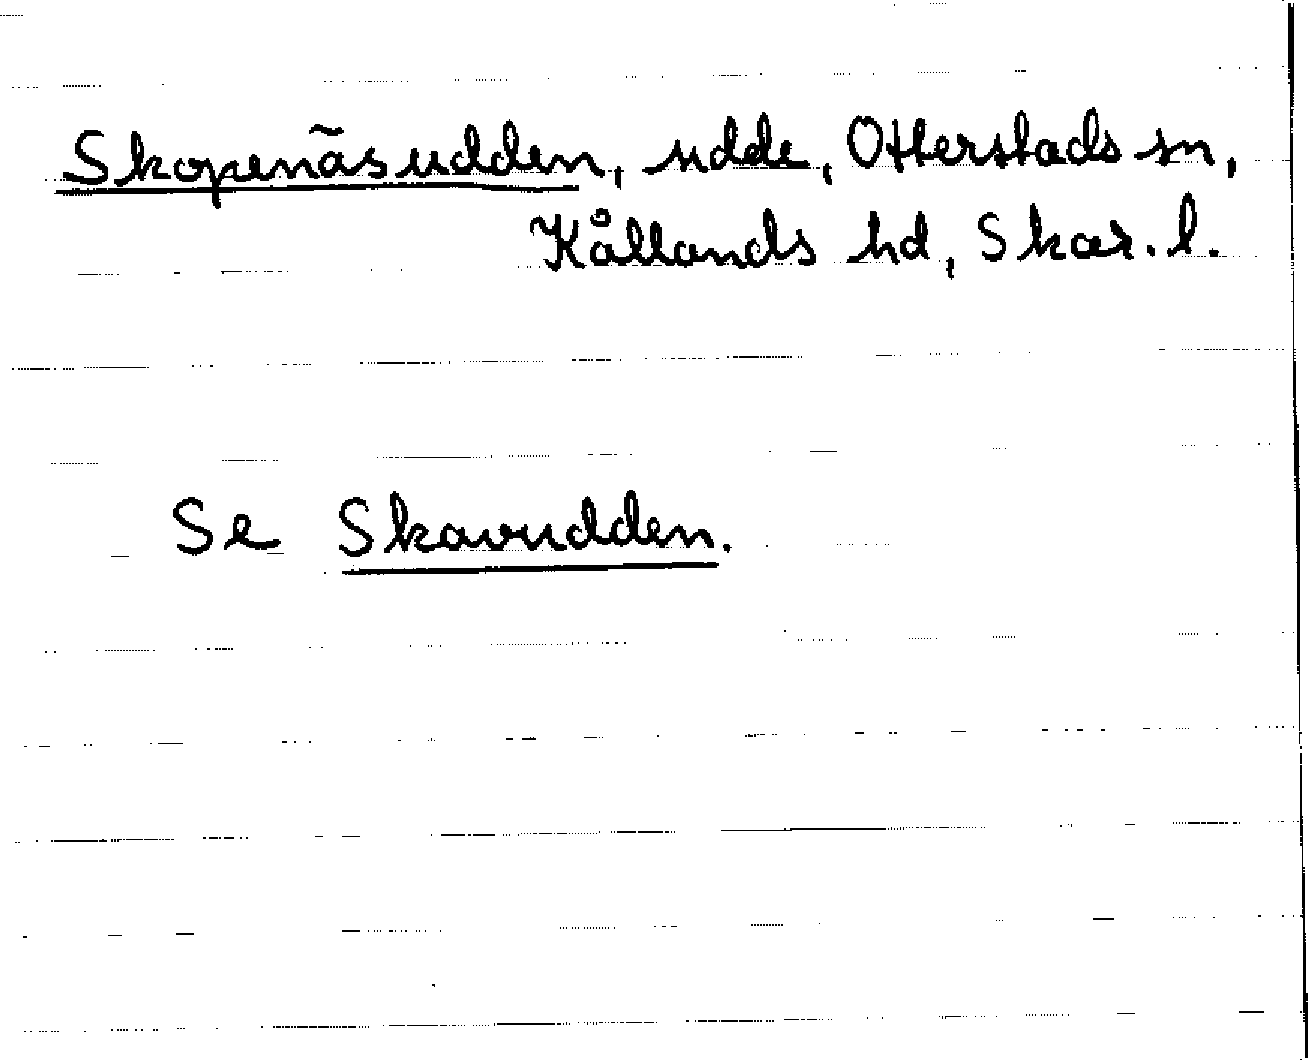 Skopenäsudden, udde, Otterstads sn,
Kållands hd, Skar. l.
Se Skavudden.